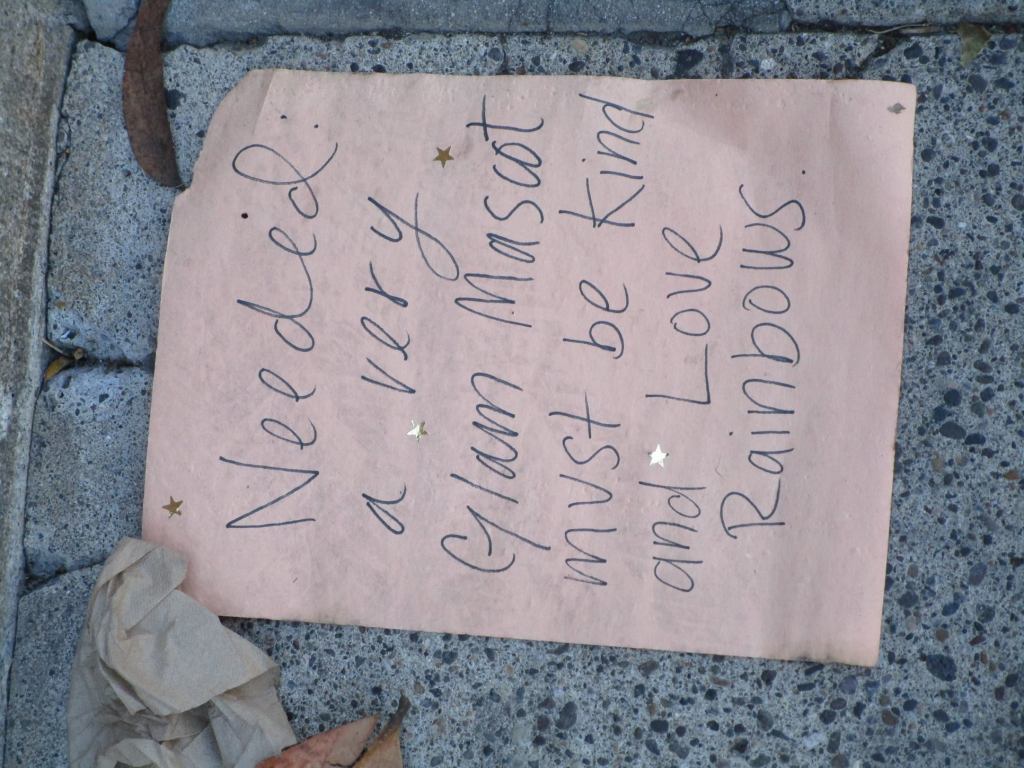 Needed:
a very
Glam Mascot
must be Kind
and Love
Rainbows.